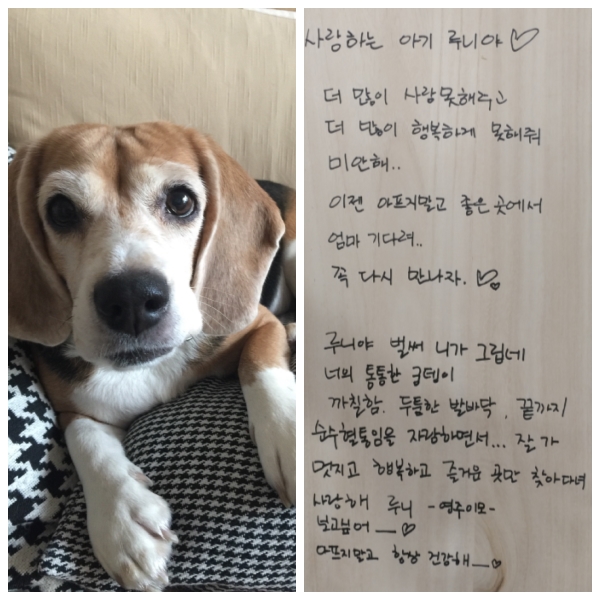 사랑하는 아기 루니야♡
더 많이 사랑못해주고
더 많이 행복하게 못해줘
미안해..
이젠 아프지말고 좋은 곳에서
엄마 기다려..
꼭 다시 만나자. ♡
루니야 벌써 니가 그립네
너의 통통한 궁뎅이
까칠함. 두툼한 발바닥, 끝까지
순수혈통임을 자랑하면서... 잘 가
멋지고 행복하고 즐거운 곳만 찾아다녀
사랑해 루니 -영주이모-
보고싶어__♡
아프지말고 항상 건강해__♡